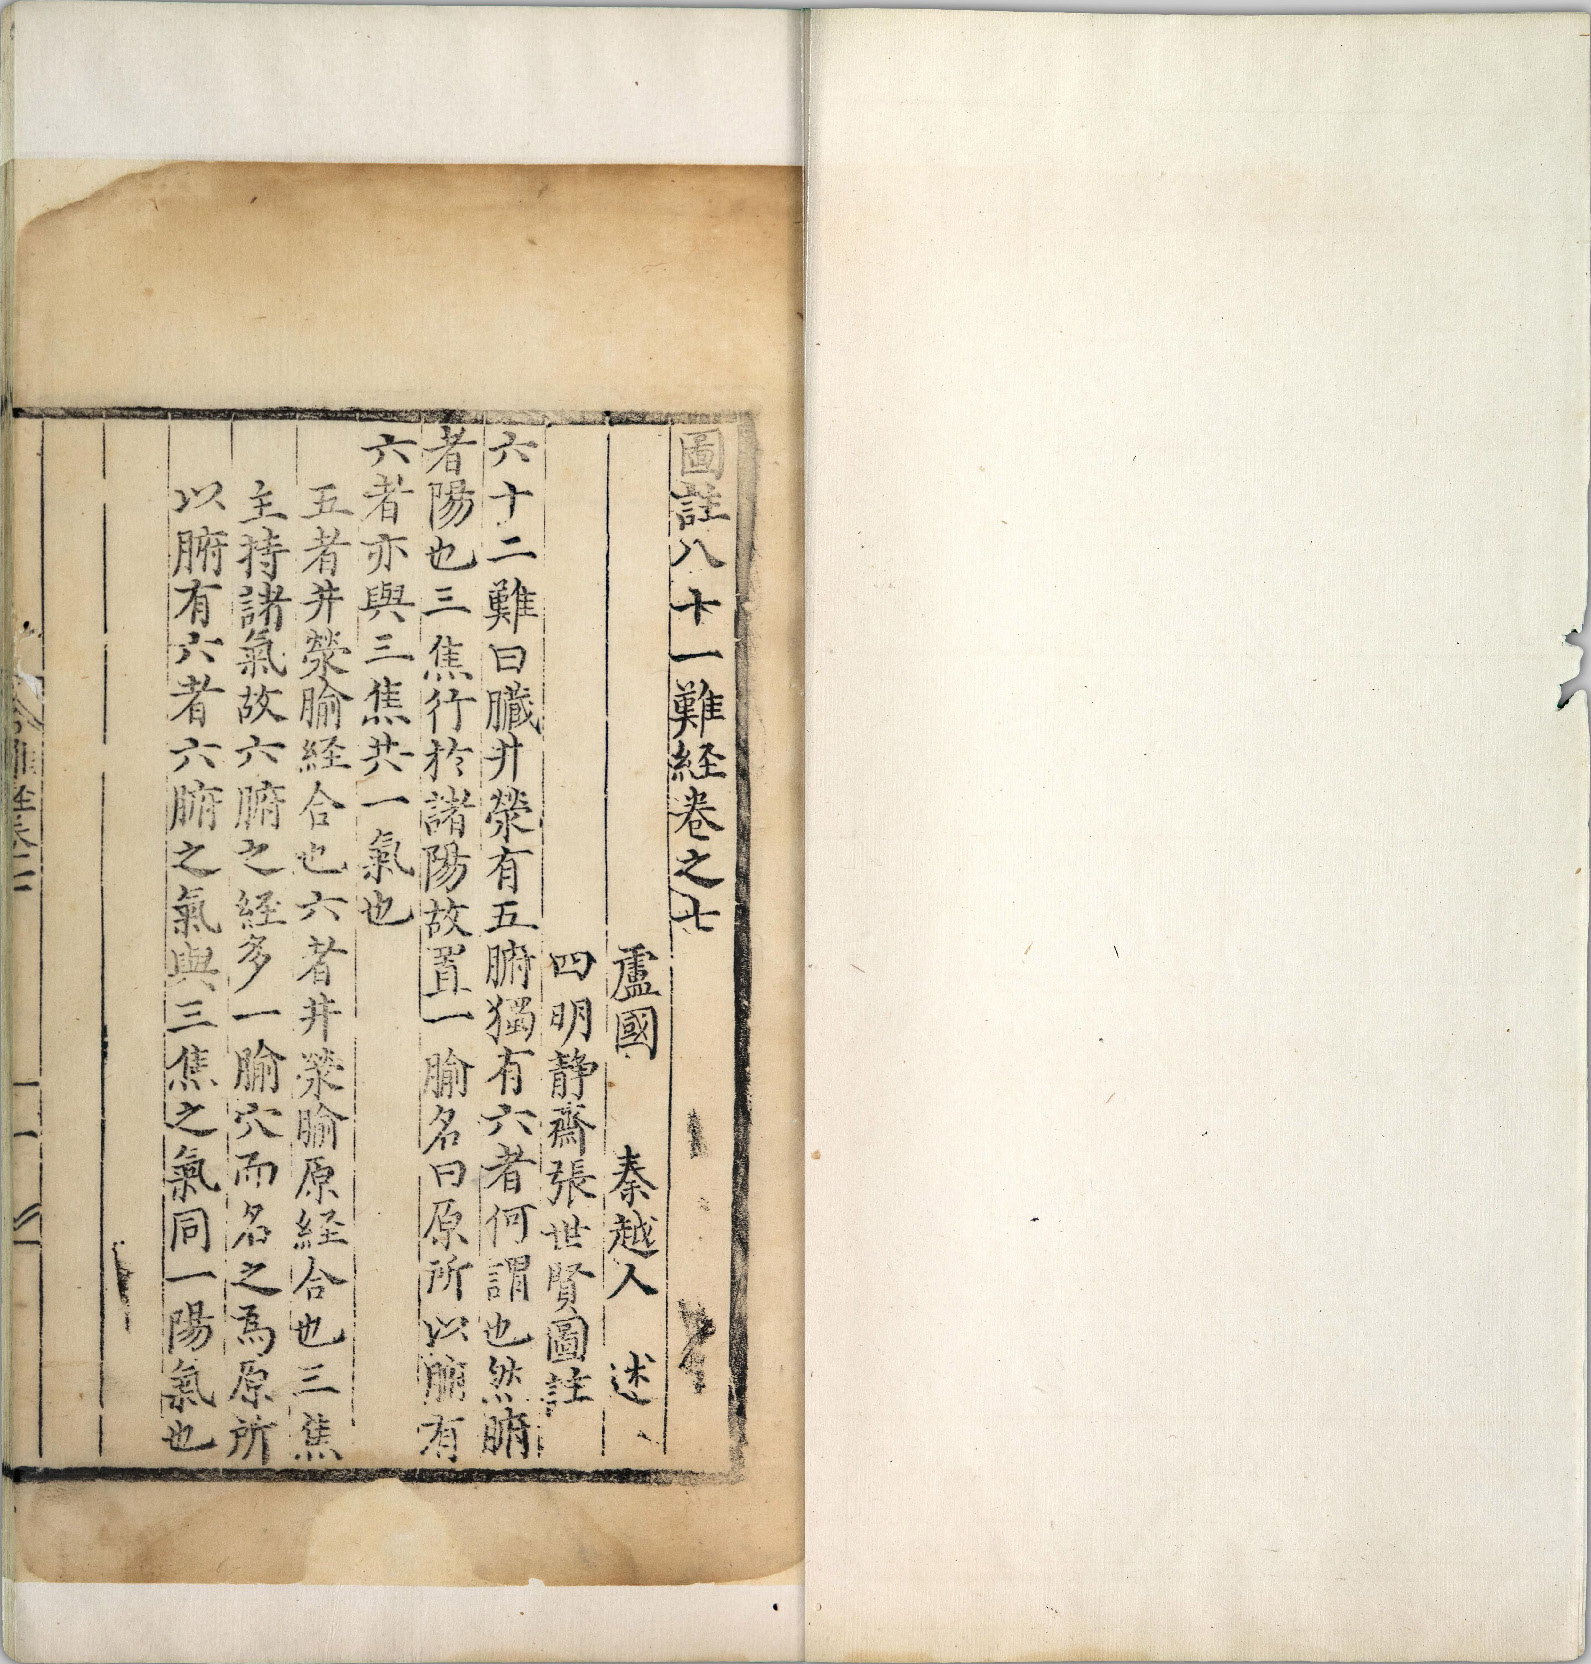 圖註八十一難経卷之七
盧國 秦越人 述
四明静齋張世賢圖註
六十二難曰臓井滎有五腑獨有六者何謂也然腑
者陽也三焦行於諸陽故置一腧名曰原所以腑有
六者亦與三焦共一氣也
五者井滎腧経合也六者井滎腧原経合也三焦
主持諸氣故六腑之経多一腧穴而名之為原所
以腑有六者六腑之氣與三焦之氣同一陽氣也